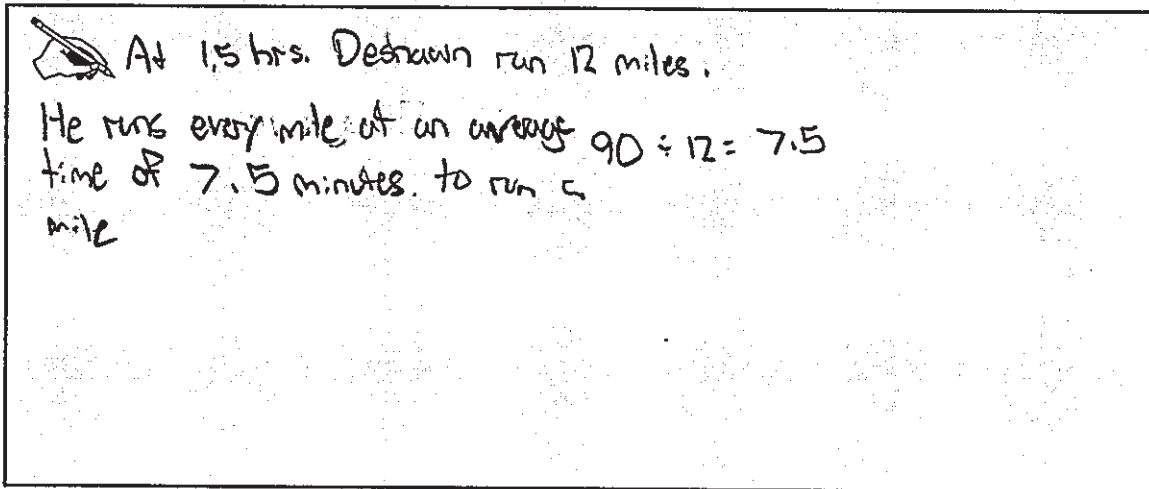 At 1.5 hrs. Deshawn run 12 miles.
He runs every mile at an average 90 ÷ 12 = 7.5
time of 7.5 minutes. to run a
mile